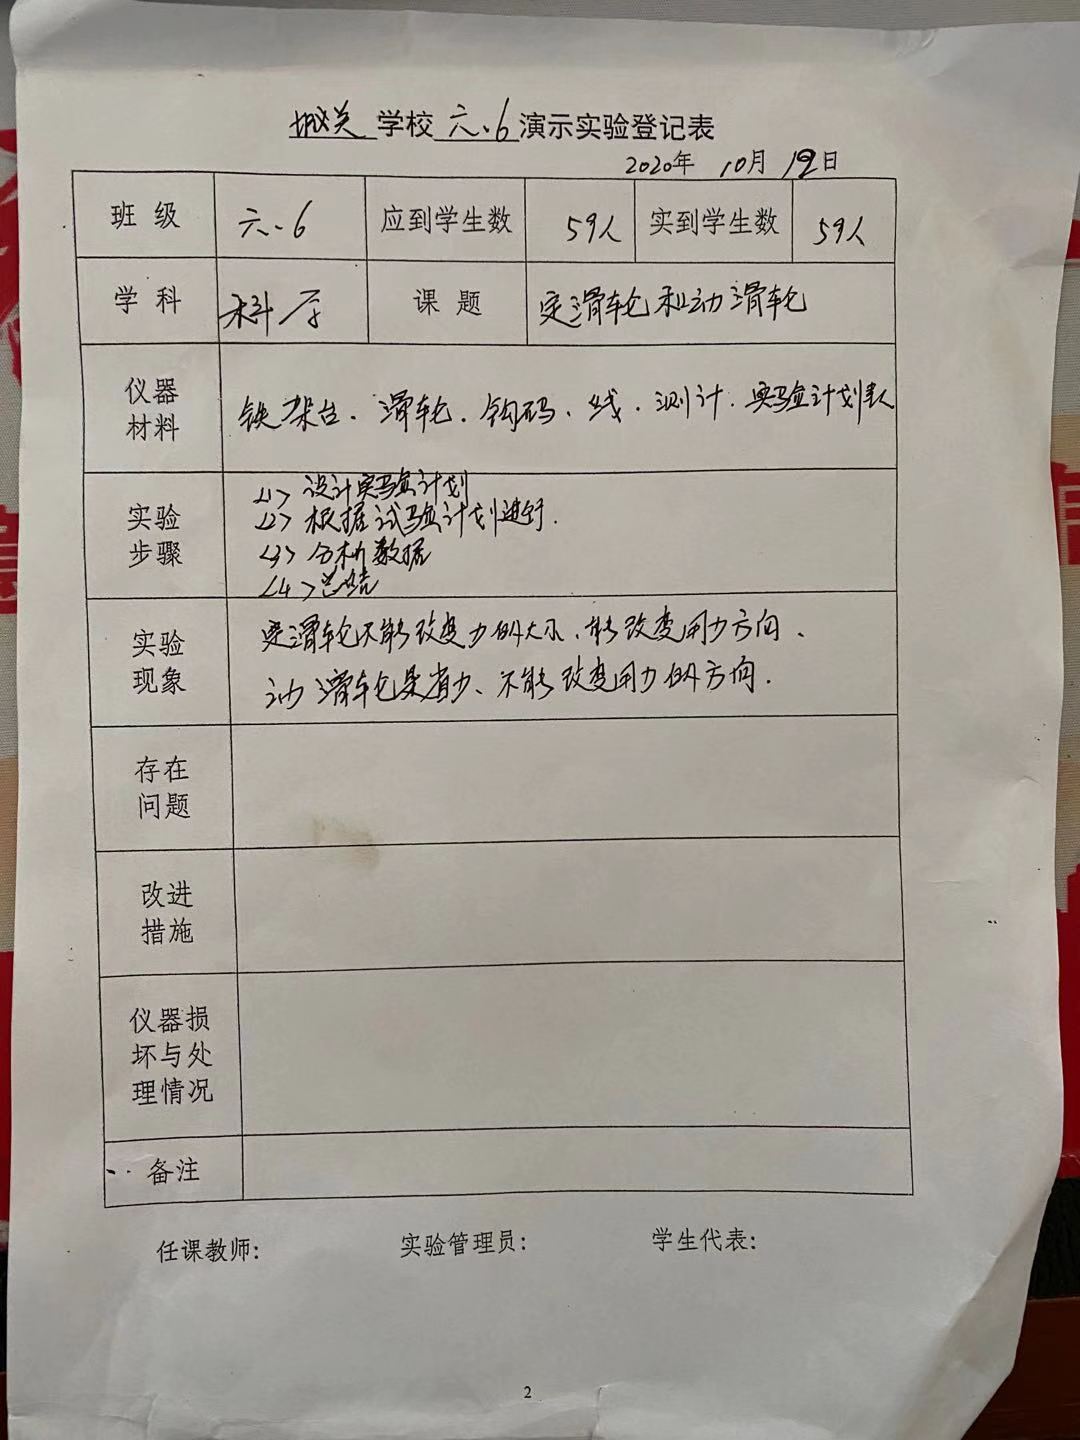 城关学校六.6演示实验登记表
2020年 10月 19日
班级 六.6 应到学生数 59人 实到学生数 59人
学科 科学 课题 定滑轮和动滑轮
仪器
材料
铁架台、滑轮、钩码、线、测计、实验计划表
实验
步骤
<1> 设计实验计划
<2> 根据试验计划进行.
<3> 分析数据
<4> 总结
实验
现象
定滑轮不能改变力的大小、能改变用力方向、
动滑轮是省力、不能改变用力的方向.
存在
问题
改进
措施
仪器损
坏与处
理情况
备注
任课教师: 实验管理员: 学生代表:
2